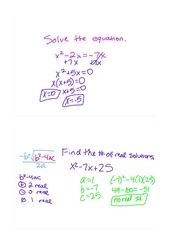 Solve the equation.
x²-2x=-7x
+7x +7x
x²+5x=0
x(x+5)=0
x=0 x+5=0
x=-5
-b±√b²-4ac
Find the # of real solutions
b²-4ac
x²-7x+25
⊕ 2 real
a=1 (-7)²-4(1)(25)
⊖ 0 real
b=-7 49-100=-51
0 1 real
c=25 no real sol